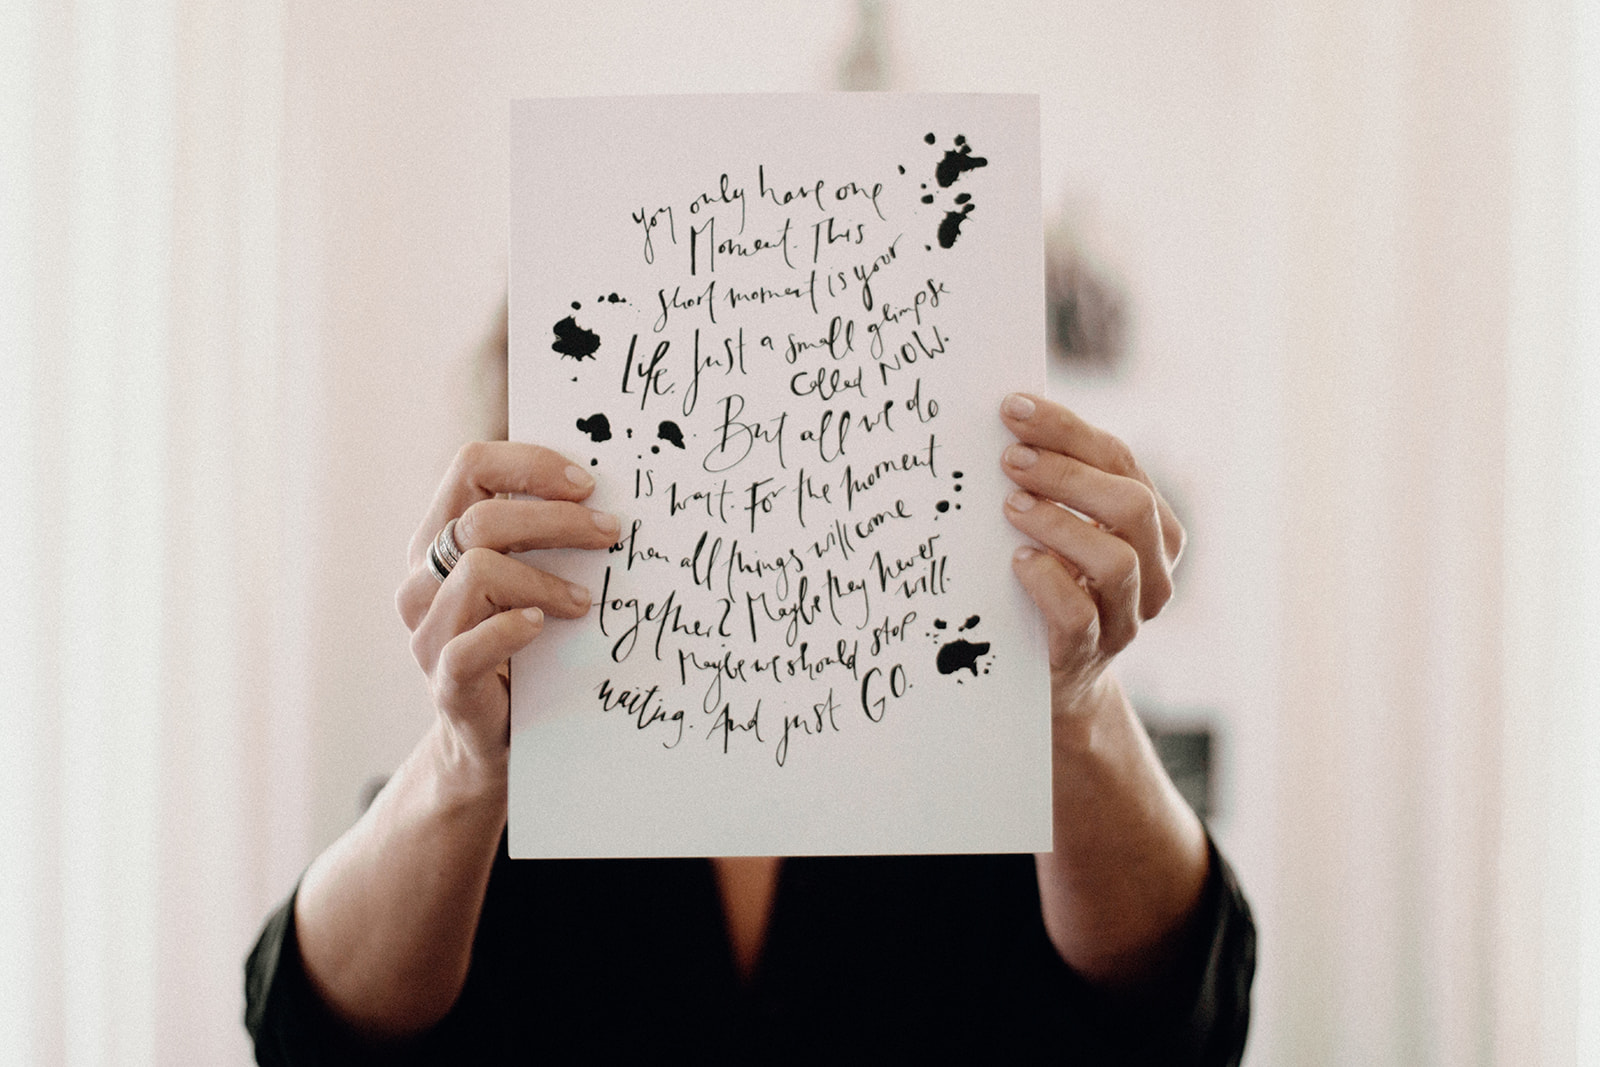 you only have one
Moment. This
short moment is your
Life. Just a small glimpse
called NOW.
But all we do
is wait. For the moment
when all things will come
together? Maybe they never
will.
Maybe we should stop
waiting. And just GO.